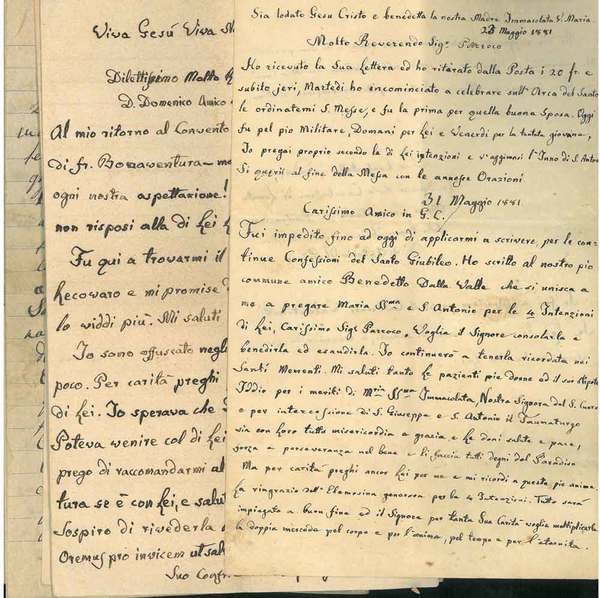 Viva Gesú Viva
Dilettissimo Molto
D. Domenico Amico
Al mio ritorno al Convento
di fr. Bonaventura
ogni nostra aspettazione!
non risposi alla di Lei
Fu qui a trovarmi il
e mi promise
lo widdi più. Mi saluti
Io sono offuscato negli
poco. Per carità preghi
di Lei. Io sperava che
Poteva venire col di Lei
prego di raccomandarmi al
tura se è con Lei, e salut
Sospiro di rivederla
Oremus pro invicem ut salv
Suo Confr
Sia lodato Gesu Cristo e benedetta la nostra Madre Immacolata V. Maria
Maggio 1881
Molto Reverendo Sigr. Parroco
Ho ricevuto la Sua Lettera ed ho ritirato dalla Posta i 20 fr. e
subito jeri, Martedì ho incominciato a celebrare sull' Arca del Santo
le ordinatemi S. Messe, e fu la prima per quella buona Sposa. Oggi
fu pel pio Militare, Domani per Lei e Venerdi per la giovane,
Io pregai proprio secondo le di Lei intenzioni e l'Inno di S. Antonio
Si quæris al fine della Messa con le annesse Orazioni
31 Maggio 1881.
Carissimo Amico in G. C.
Fui impedito fino ad oggi di applicarmi a scrivere per le con-
tinue Confessioni del Santo Giubileo. Ho scritto al nostro pio
commune amico Benedetto Dalla Valle che si unisca a
me a pregare Maria SSma e S. Antonio per le 4 Intenzioni
di Lei, Carissimo Sigr Parroco. Voglia il Signore consolarla e
benedirla ed esaudirla. Io continuerò a tenerla ricordata nei
Santi Mementi. Mi saluti tanto le pazienti pie donne ed il suo Nipote
Iddio per i meriti di Mria SSma Immacolata, Nostra Signora del S. Cuore
e per intercessione di S. Giuseppe e S. Antonio il Taumaturgo
sia con loro tutto misericordia e grazia e le doni salute e pace,
forza e perseveranza nel bene e li faccia tutti degni del Paradiso
Ma per carità preghi ancor Lei per me e mi ricordi a queste pie anime.
La ringrazio dell' Elemosina generosa per le 4 Intenzioni. Tutto sarà
impiegato a buon fine ed il Signore per tanta Sua Carità voglia moltiplicarle
la doppia mercede pel corpo e per l'anima, pel tempo e per l'eternità.